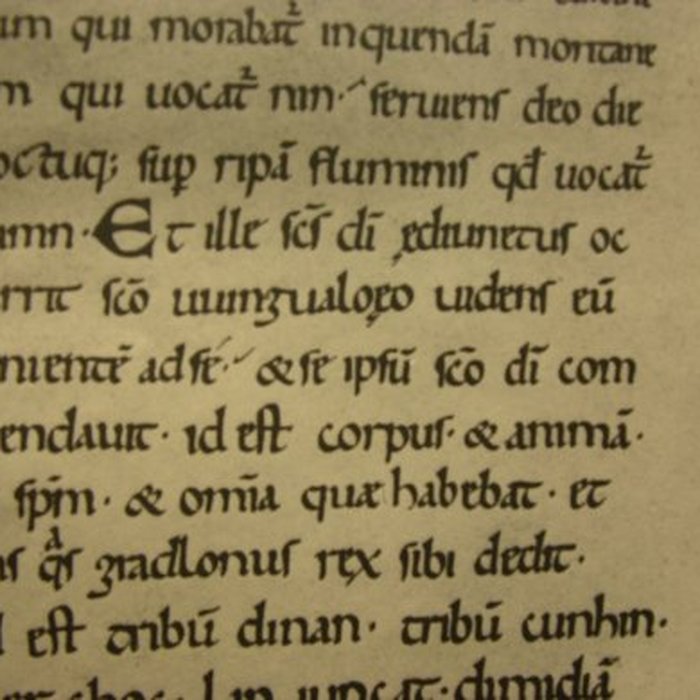 um qui morabat᷑ in quendā montane
m qui uocat᷑ nin· seruiens deo die
octuq; sup ripā fluminis qđ uocat᷑
amn· Et ille sc̄s dī ediunetus oc
rrit sc̄o uuingualoeo uidens eū
nientē ad se· & se ipsū sc̄o dī com
endauit· id est corpus· & animā·
sp̄m· & om̄ia quæ habebat· et
as qͣs gradlonus rex sibi dedit·
est tribū dinan· tribū cunhin·
dimidiā